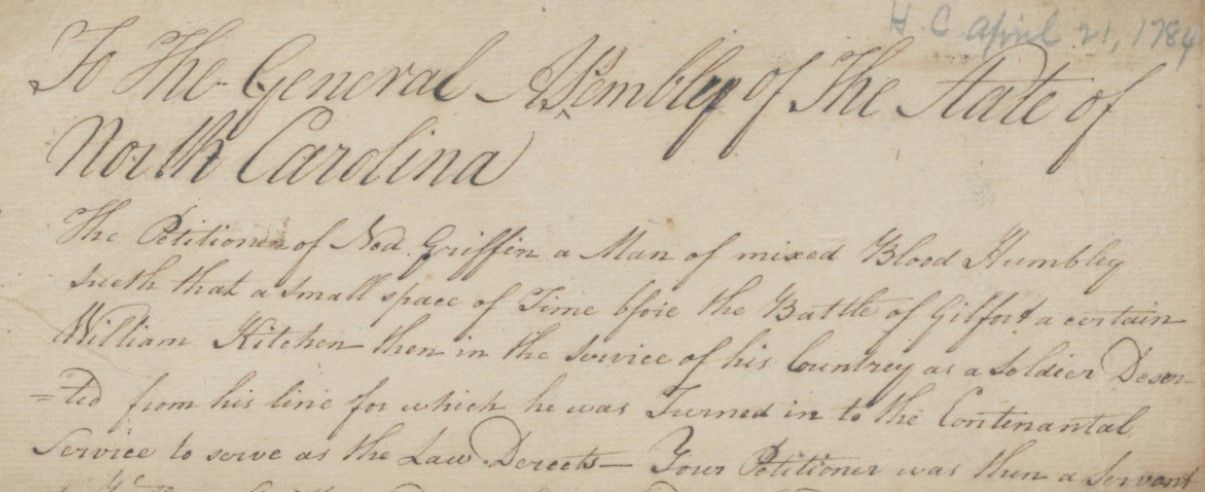 H C April 21, 1784
To The General Assembley of The State of
North Carolina
The Petitioner of Ned Griffin a Man of mixed Blood Humbley
sueth that a small space of Time bfore the Battle of Gilfort a certain
William Kitchen then in the Service of his Countrey as a Soldier Deser-
=ted from his line for which he was Turned in to the Continantal
Service to serve as the Law Derects— Your Petitioner was then a Servant